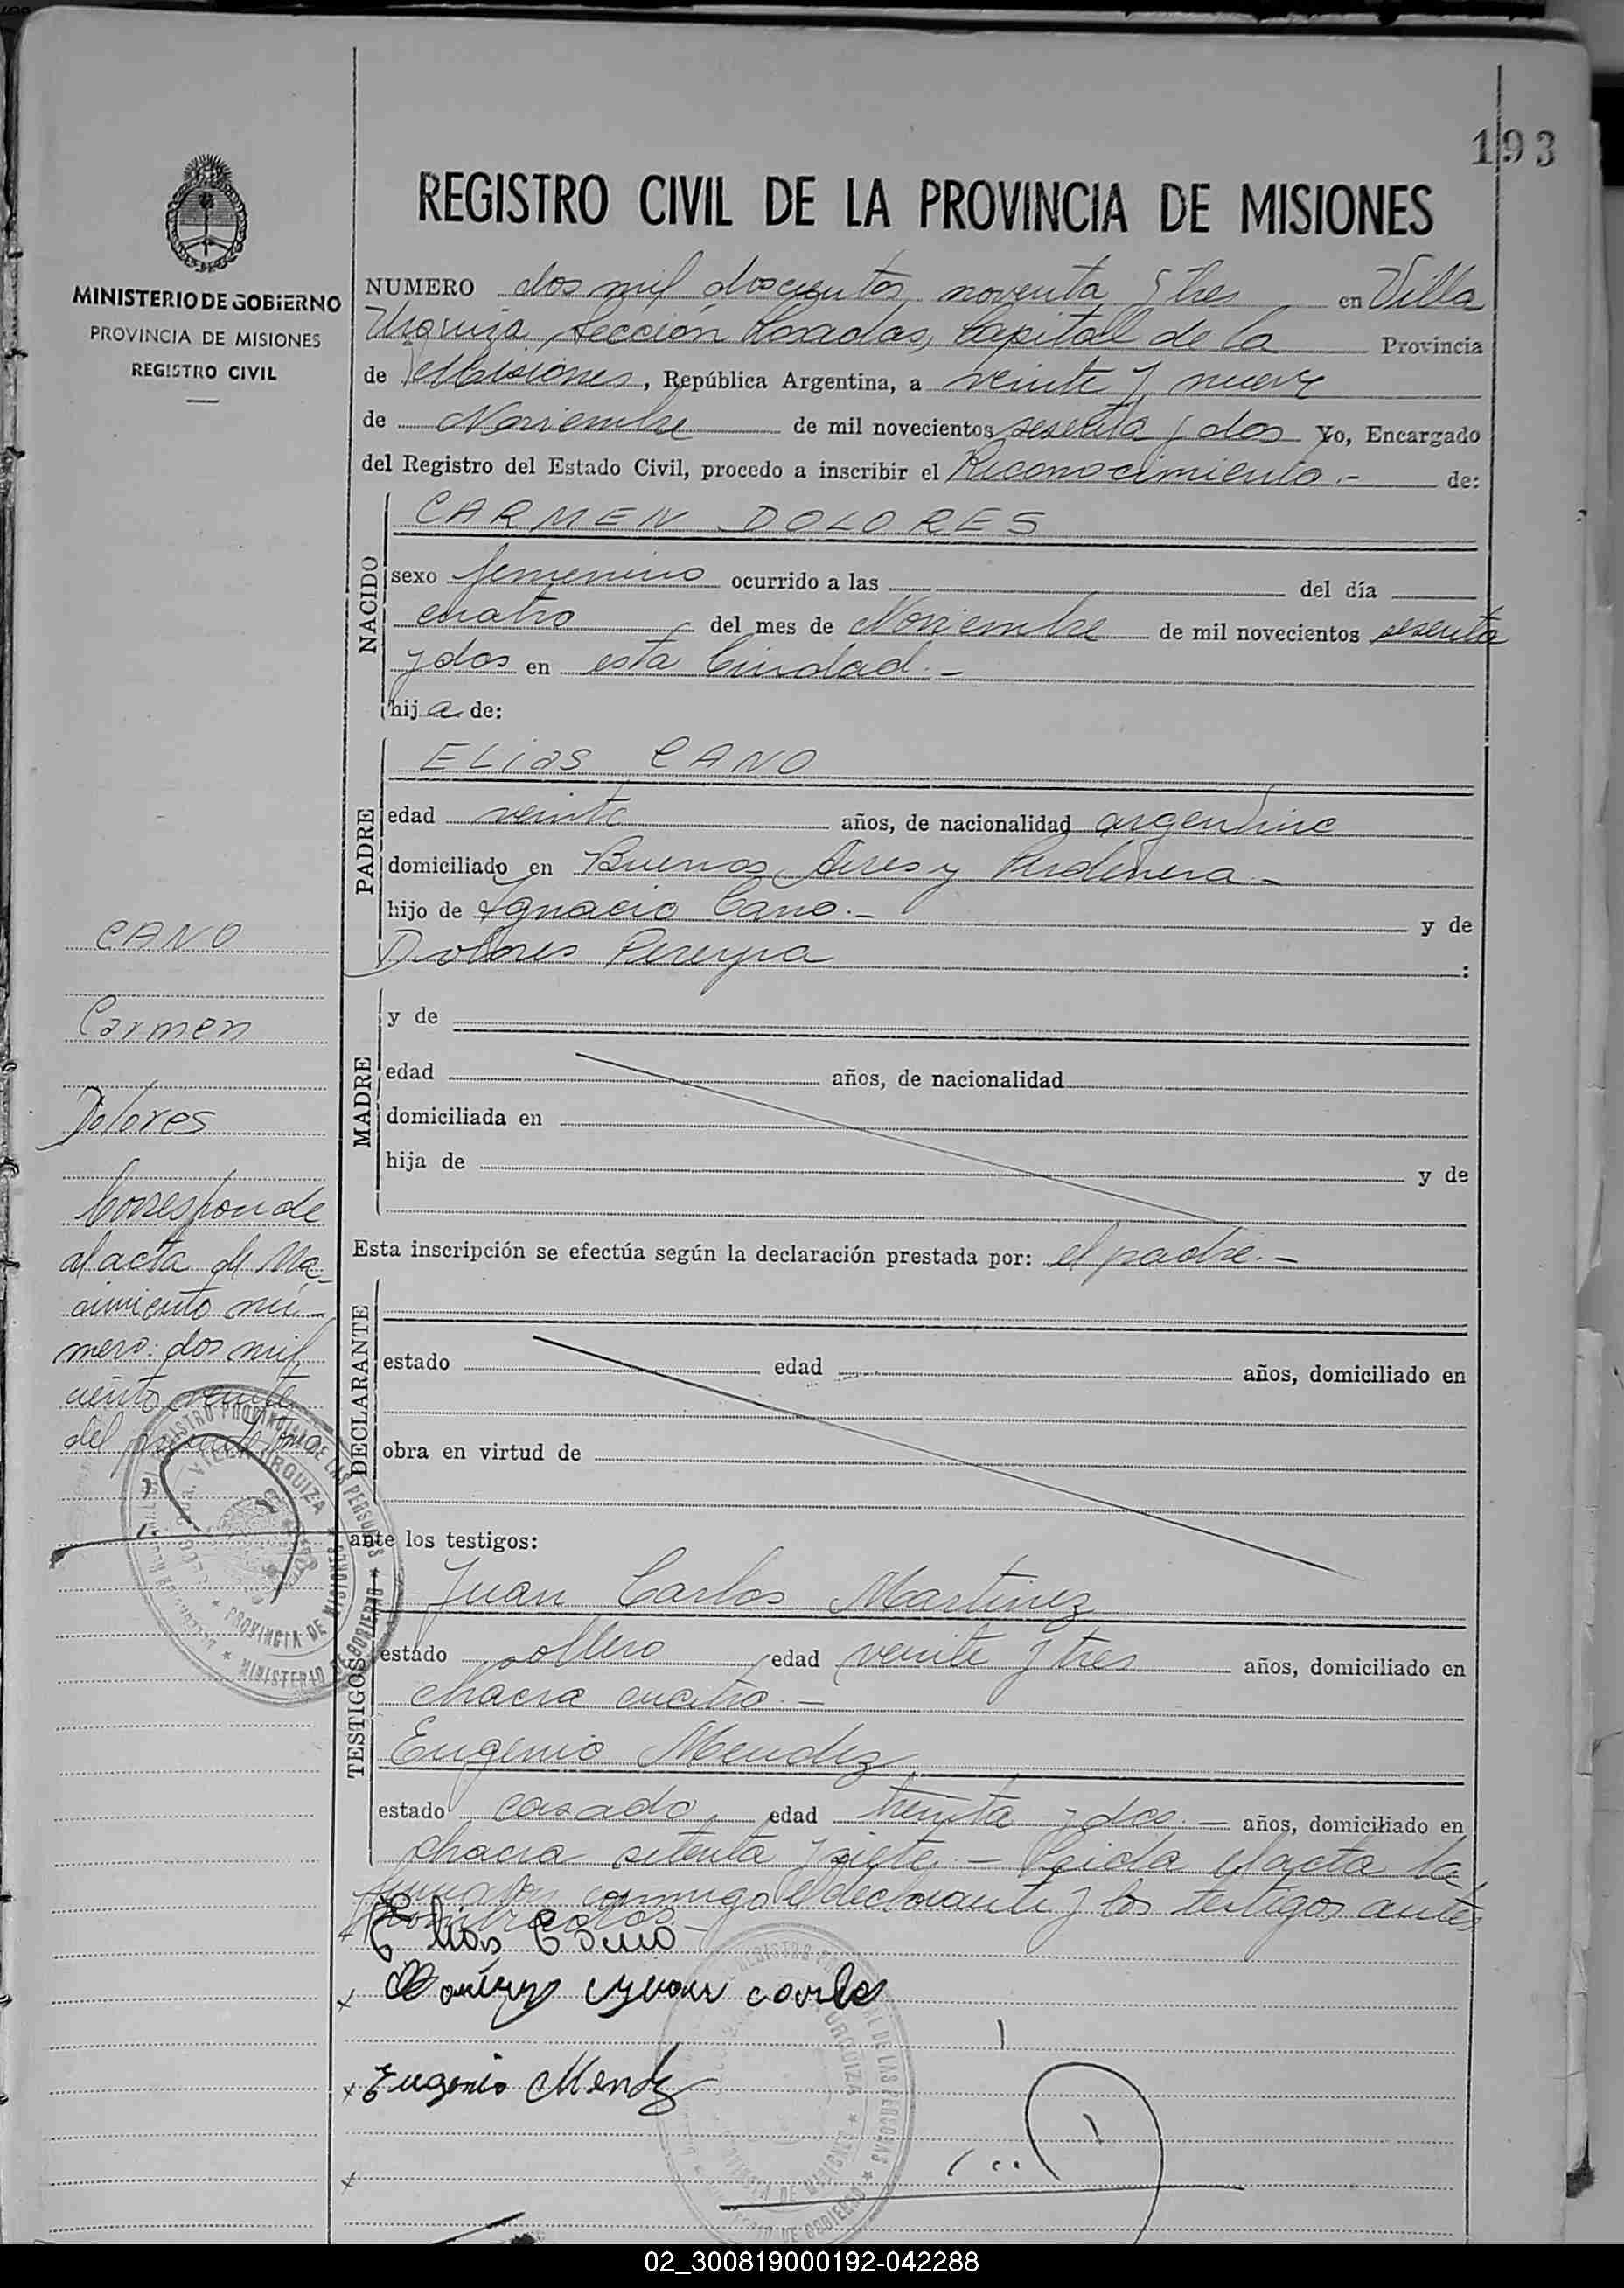 193
REGISTRO CIVIL DE LA PROVINCIA DE MISIONES
MINISTERIO DE GOBIERNO
PROVINCIA DE MISIONES
REGISTRO CIVIL
NUMERO dos mil doscientos noventa y tres en Villa
Urquiza Sección Posadas, Capital de la Provincia
de Misiones, República Argentina, a veinte y nueve
de Noviembre de mil novecientos sesenta y dos Yo, Encargado
del Registro del Estado Civil, procedo a inscribir el Reconocimiento.- de:
NACIDO
CARMEN DOLORES
sexo femenino ocurrido a las del día
cuatro del mes de Noviembre de mil novecientos sesenta
y dos en esta Ciudad.-
hija de:
PADRE
ELIAS CANO
edad veinte años, de nacionalidad argentino
domiciliado en Buenos Aires y Perdenera-
hijo de Ignacio Cano.- y de
Dolores Pereyra :
MADRE
y de
edad años, de nacionalidad
domiciliada en
hija de y de
Esta inscripción se efectúa según la declaración prestada por: el padre.-
DECLARANTE
estado edad años, domiciliado en
obra en virtud de
ante los testigos:
TESTIGOS
Juan Carlos Martinez
estado soltero edad veinte y tres años, domiciliado en
chacra cuatro.-
Eugenio Mendez
estado casado edad treinta y dos.- años, domiciliado en
chacra setenta y siete.- Leida el acta la
firmaron conmigo el declarante y los testigos antes
nombrados-
Elias Cano
x Martinez Juan Carlos
x Eugenio Mendez
x
CANO
Carmen
Dolores
Corresponde
al acta de Na-
cimiento nú-
mero: dos mil
ciento veinte
del presente año
REGISTRO PROVINCIAL DE LAS PERSONAS
VILLA URQUIZA
PROVINCIA DE MISIONES
MINISTERIO DE GOBIERNO
02_300819000192-042288